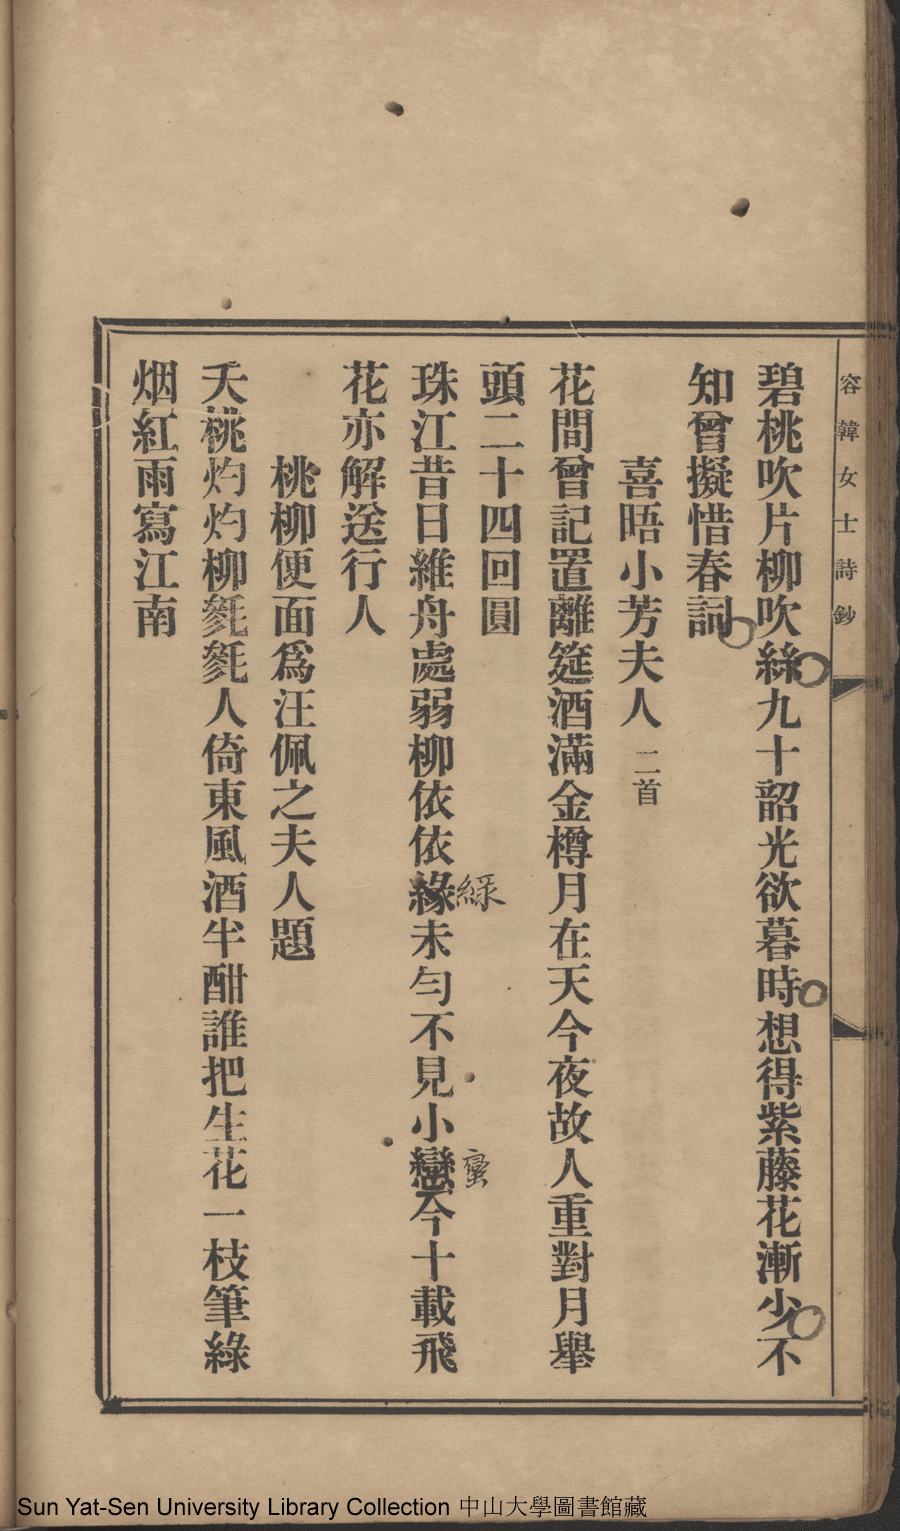 容韓女士詩鈔
碧桃吹片柳吹絲九十韶光欲暮時想得紫藤花漸少不
知曾擬惜春詞
喜晤小芳夫人 二首
花間曾記置離筵酒滿金樽月在天今夜故人重對月舉
頭二十四回圓
珠江昔日維舟處弱柳依依緣未勻不見小戀今十載飛
綠
蠻
花亦解送行人
桃柳便面爲汪佩之夫人題
夭桃灼灼柳毿毿人倚東風酒半酣誰把生花一枝筆綠
烟紅雨寫江南
Sun Yat-Sen University Library Collection 中山大學圖書館藏